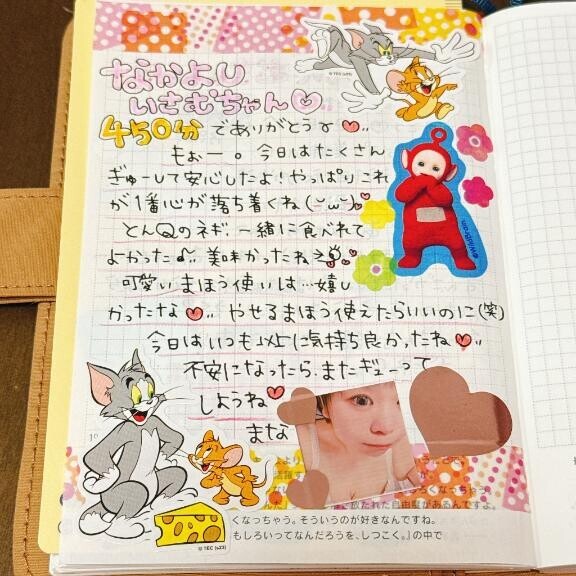 © TEC (s23)
なかよし
いさむちゃん♡
450分でありがとう♡
もぉー。今日はたくさん
ぎゅーして安心したよ!やっぱりこれ
が1番心が落ち着くね(˘ω˘)
とんQのネギ、一緒に食べれて
よかった♪美味かったね
可愛いまほう使いは…嬉し
かったな♡やせるまほう使えたらいいのに(笑)
今日はいつも以上に気持ち良かったね♡
不安になったら、またギューって
しようね♡
まな
くなっちゃう。そういうのが好きなんですね。
もしろいってなんだろうを、しつこく。』の中で
© TEC (s23)